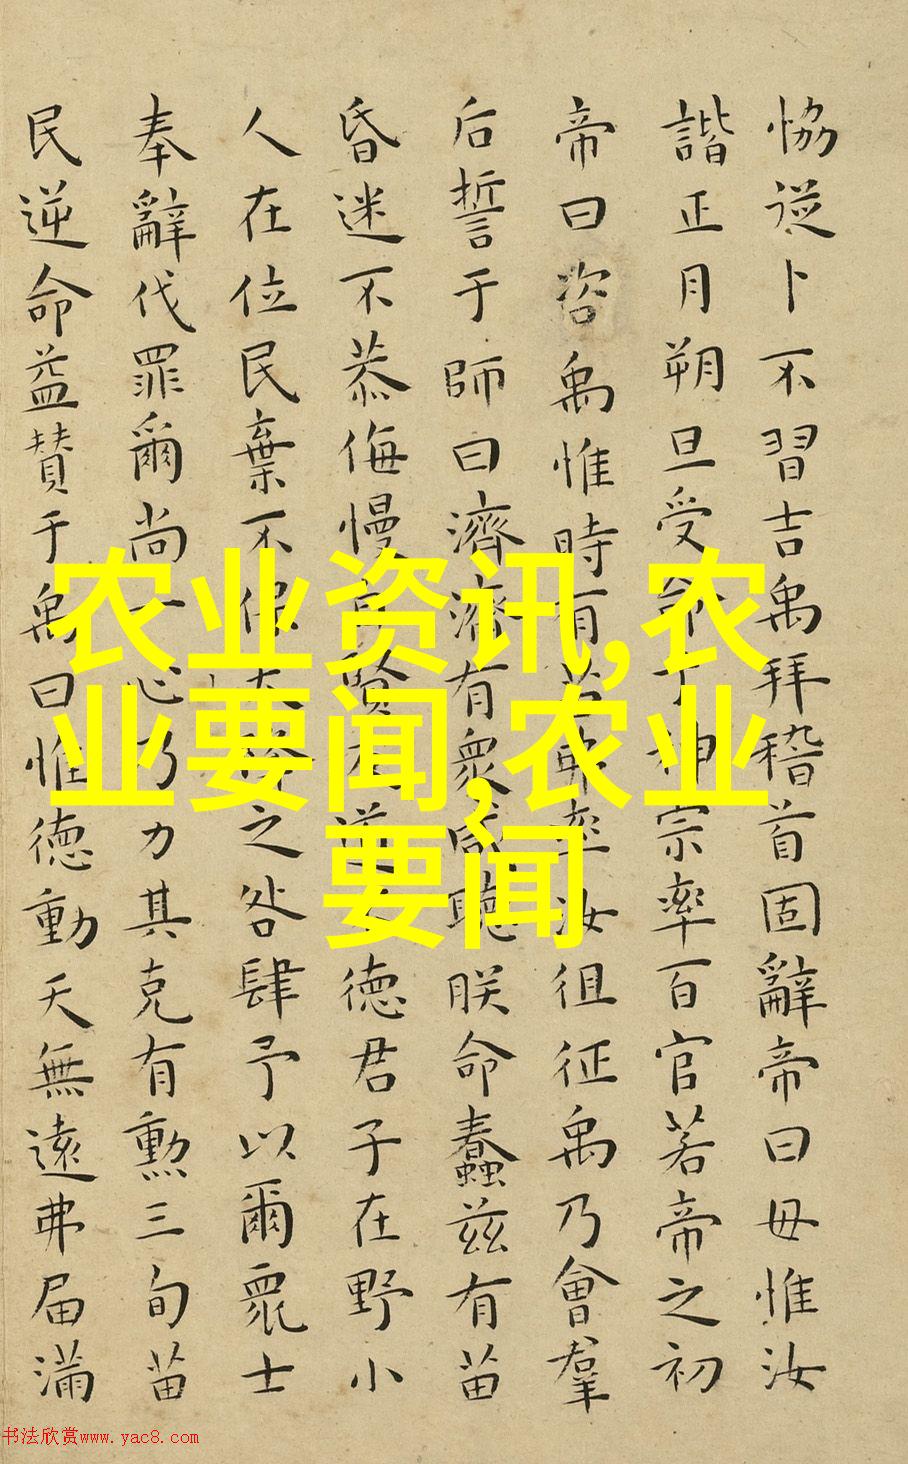 恊從卜不習吉禹拜稽首固辭帝曰毋惟汝
諧正月朔旦受命于神宗率百官若帝之初
帝曰咨禹惟時有苗弗率汝徂征禹乃會羣
后誓于師曰濟濟有衆咸聽朕命蠢兹有苗
昏迷不恭侮慢自賢反道敗徳君子在野小
人在位民棄不保天降之咎肆予以爾衆士
奉辭伐罪爾尚一心乃力其克有勲三旬苗
民逆命益賛于禹曰惟徳動天無遠弗届滿
农业资讯,农
业要闻,农业
要闻
书法欣赏www.yac8.com